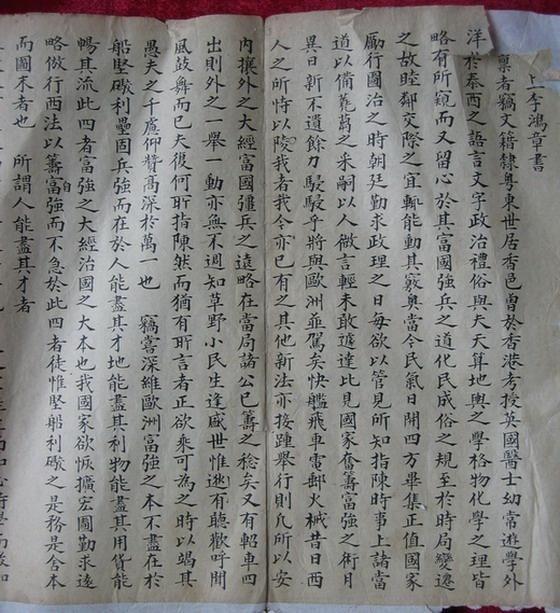 上李鴻章書
稟者竊文籍隸粤東世居香邑曾於香港考授英國醫士幼常遊學外
洋於泰西之語言文字政治禮俗與天天算地輿之學格物化學之理皆
略有所窺而又留心於其富國強兵之道化民成俗之規至於時局變遷
之故睦鄰交際之宜輒能動其竅奥當今民氣日開四方畢集正值國家
勵行國治之時朝廷勤求政理之日每欲以管見所知指陳時事上諸當
道以備蕘蒭之采嗣以人微言輕未敢遽達比見國家奮籌富強之術月
異日新不遺餘力駸駸乎將與歐洲並駕矣快艦飛車電郵火械昔日西
人之所恃以陵我者我今亦已有之其他新法亦接踵舉行則凡所以安
內攘外之大經富國彊兵之遠略在當局諸公已籌之稔矣又有軺車四
出則外之一舉一動亦無不週知草野小民生逢盛世惟逖有聽歡呼聞
風鼓舞而已夫復何所指陳然而猶有所言者正欲乘可為之時以竭其
愚夫之千慮仰贊高深於萬一也 竊嘗深維歐洲富強之本不盡在於
船堅礮利壘固兵強而在於人能盡其才地能盡其利物能盡其用貨能
暢其流此四者富強之大經治國之大本也我國家欲恢擴宏圖勤求遠
略倣行西法以籌自富強而不急於此四者徒惟堅船利礮之是務是舍本
而圖末者也 所謂人能盡其才者